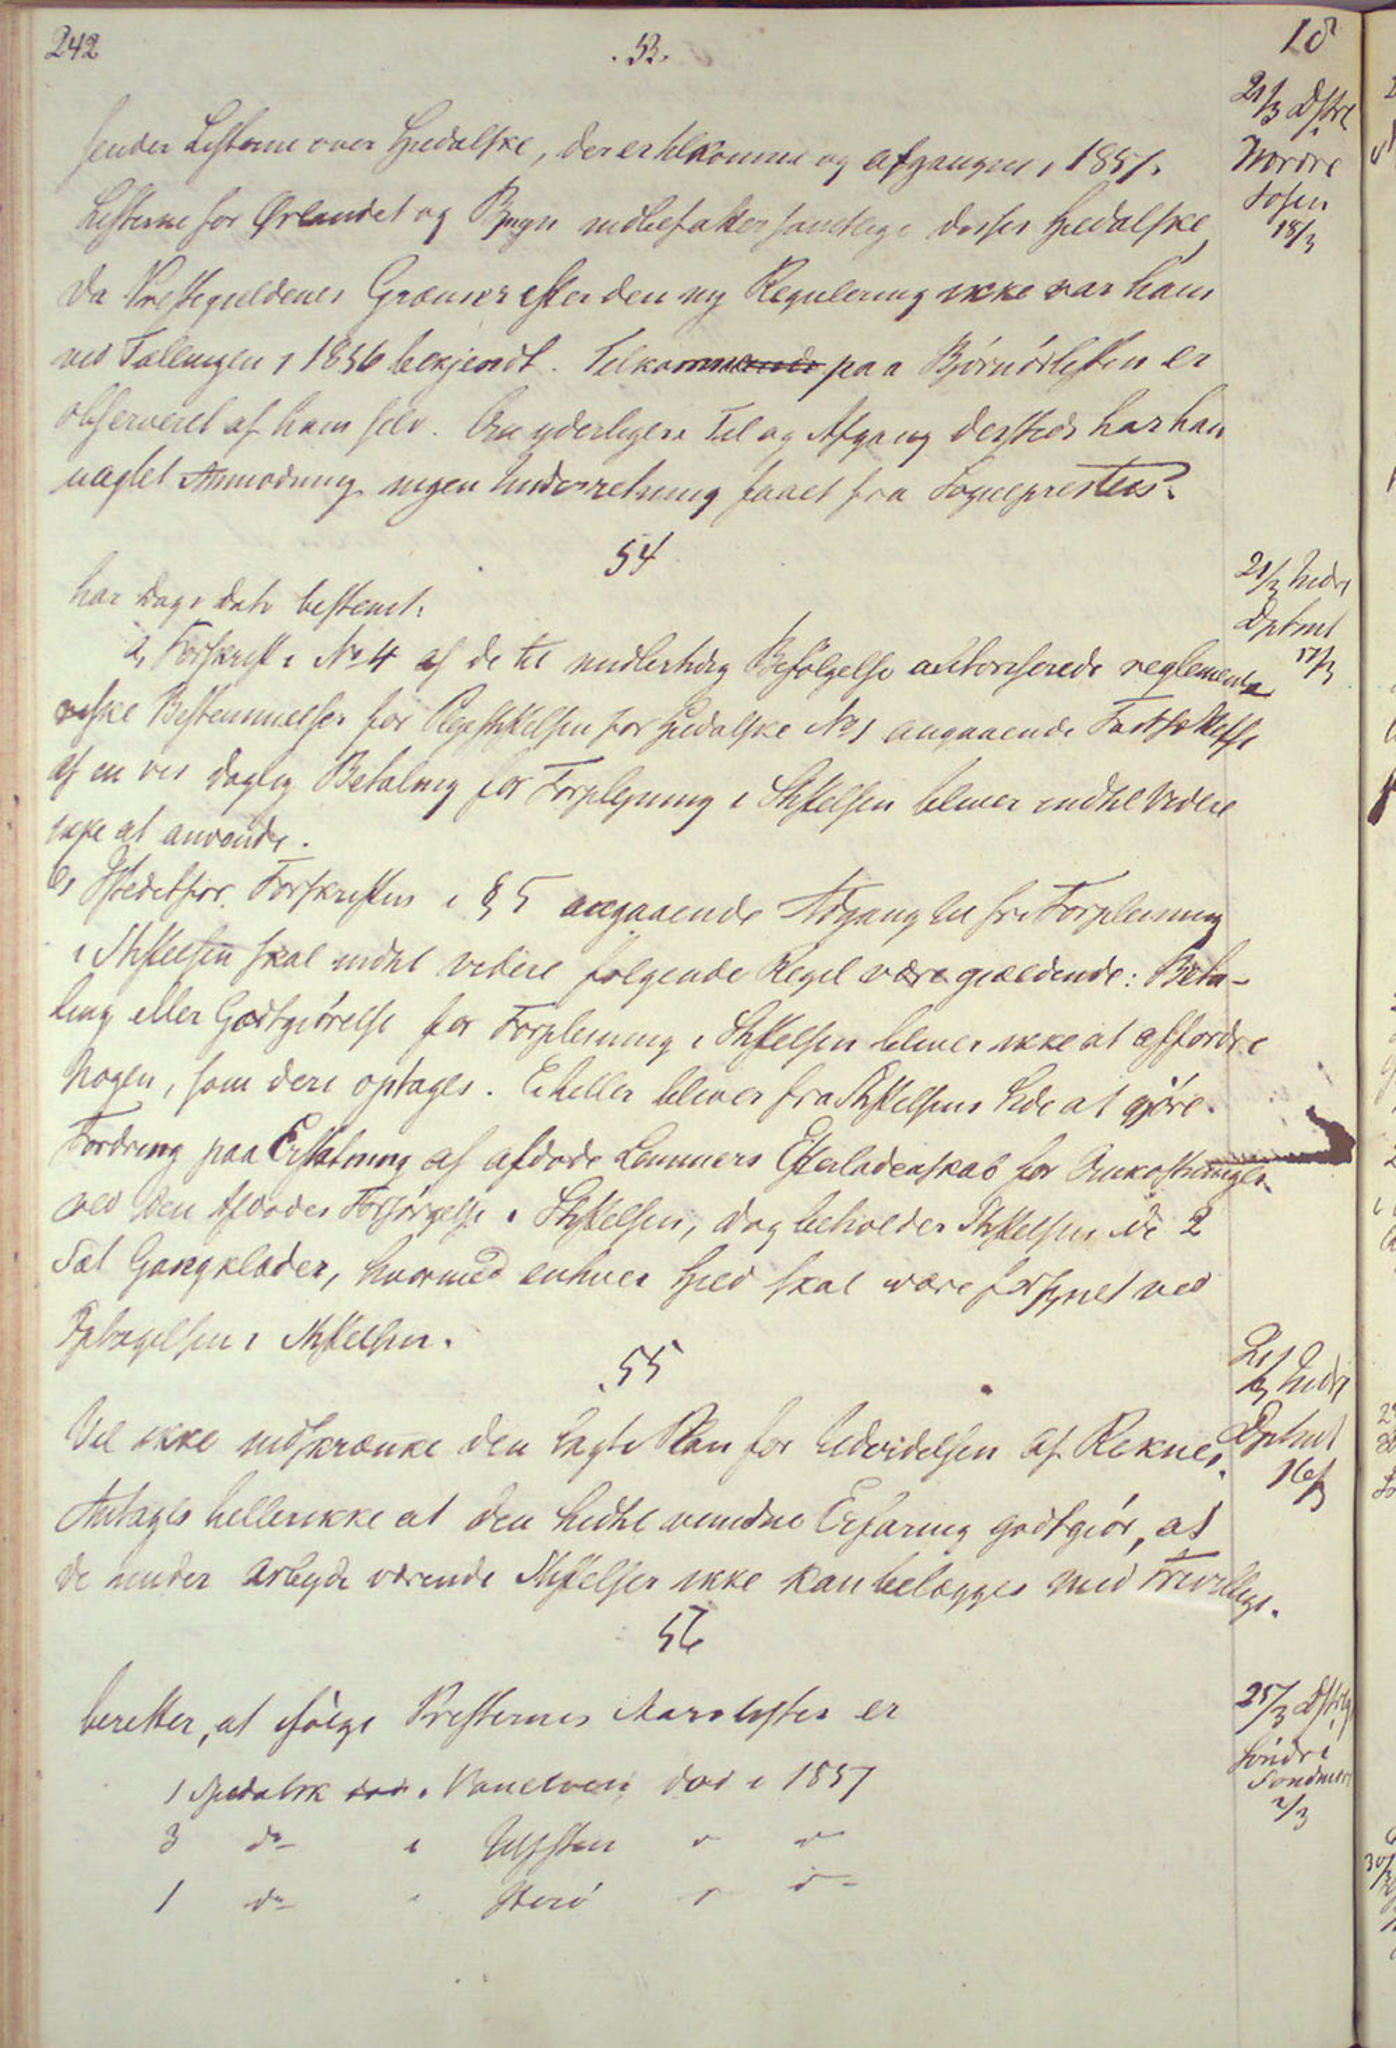 242
53.
18
21/3 Dstr
Nordre
Fosen
18/3
sender Listerne over Spedalske, der er tilkomne og afgangne i 1857.
Listerne for Ørlandet og Bjugn indbefatter samtlige disses Spedalske,
da Præstegjeldenes Grændser efter den ny Regulering ikke var ham
ved Tællingen i 1856 bekjendt. Tilkommende paa Bjørnørlisten er
observeret af ham selv. Om yderligere Til og Afgang dersteds har han
uagtet Anmodning ingen Underretning faaet fra Sognepresten.
54
21/3 Indre
Dptmt
17/3
har Dags Dato bestemt:
a, Forskrift i No 4 af de til midlertidig Befølgelse autoriserede reglementa
riske Bestemmelser for Plejestiftelsen for Spedalske No 1 angaaende Fastsættelse
af en vis daglig Betaling for Forpleining i Stiftelsen bliver indtil Videre
ikke at anvende.
b, Istedetfor Forskriften i § 5 angaaende Adgang til fri Forpleining
i Stiftelsen skal indtil videre følgende Regel være gjældende: Beta-
ling eller Godtgjörelse for Forpleining i Stiftelsen bliver ikke at affordre
Nogen, som deri optages. Ei heller bliver fra Stiftelsens Side at gjöre
Fordring paa Erstatning af afdøde Lemmers Efterladenskab for Omkostninger
ved den Afdødes Forsørgelse i Stiftelsen, dog beholder Stiftelsen de 2
Sæt Gangklæder, hvormed enhver Sped skal være forsynet ved
Optagelsen i Stiftelsen.
55
21/3 Indre
Dptmt
16/3
Vil ikke indskrænke den lagte Plan for Udvidelsen af Reknes.
Antages heller ikke at den hidtil vundne Erfaring godtgjör, at
de under Arbeide værende Stiftelser ikke kan belægges med Frivillige.
56
25/3 Dstrlg
Söndre
Söndmör
2/3
beretter, at ifölge Presternes Aarslister er
1 Spedalsk död i Vanelven död i 1857
3 do i Ulfsten " "
1 do " Herö " "